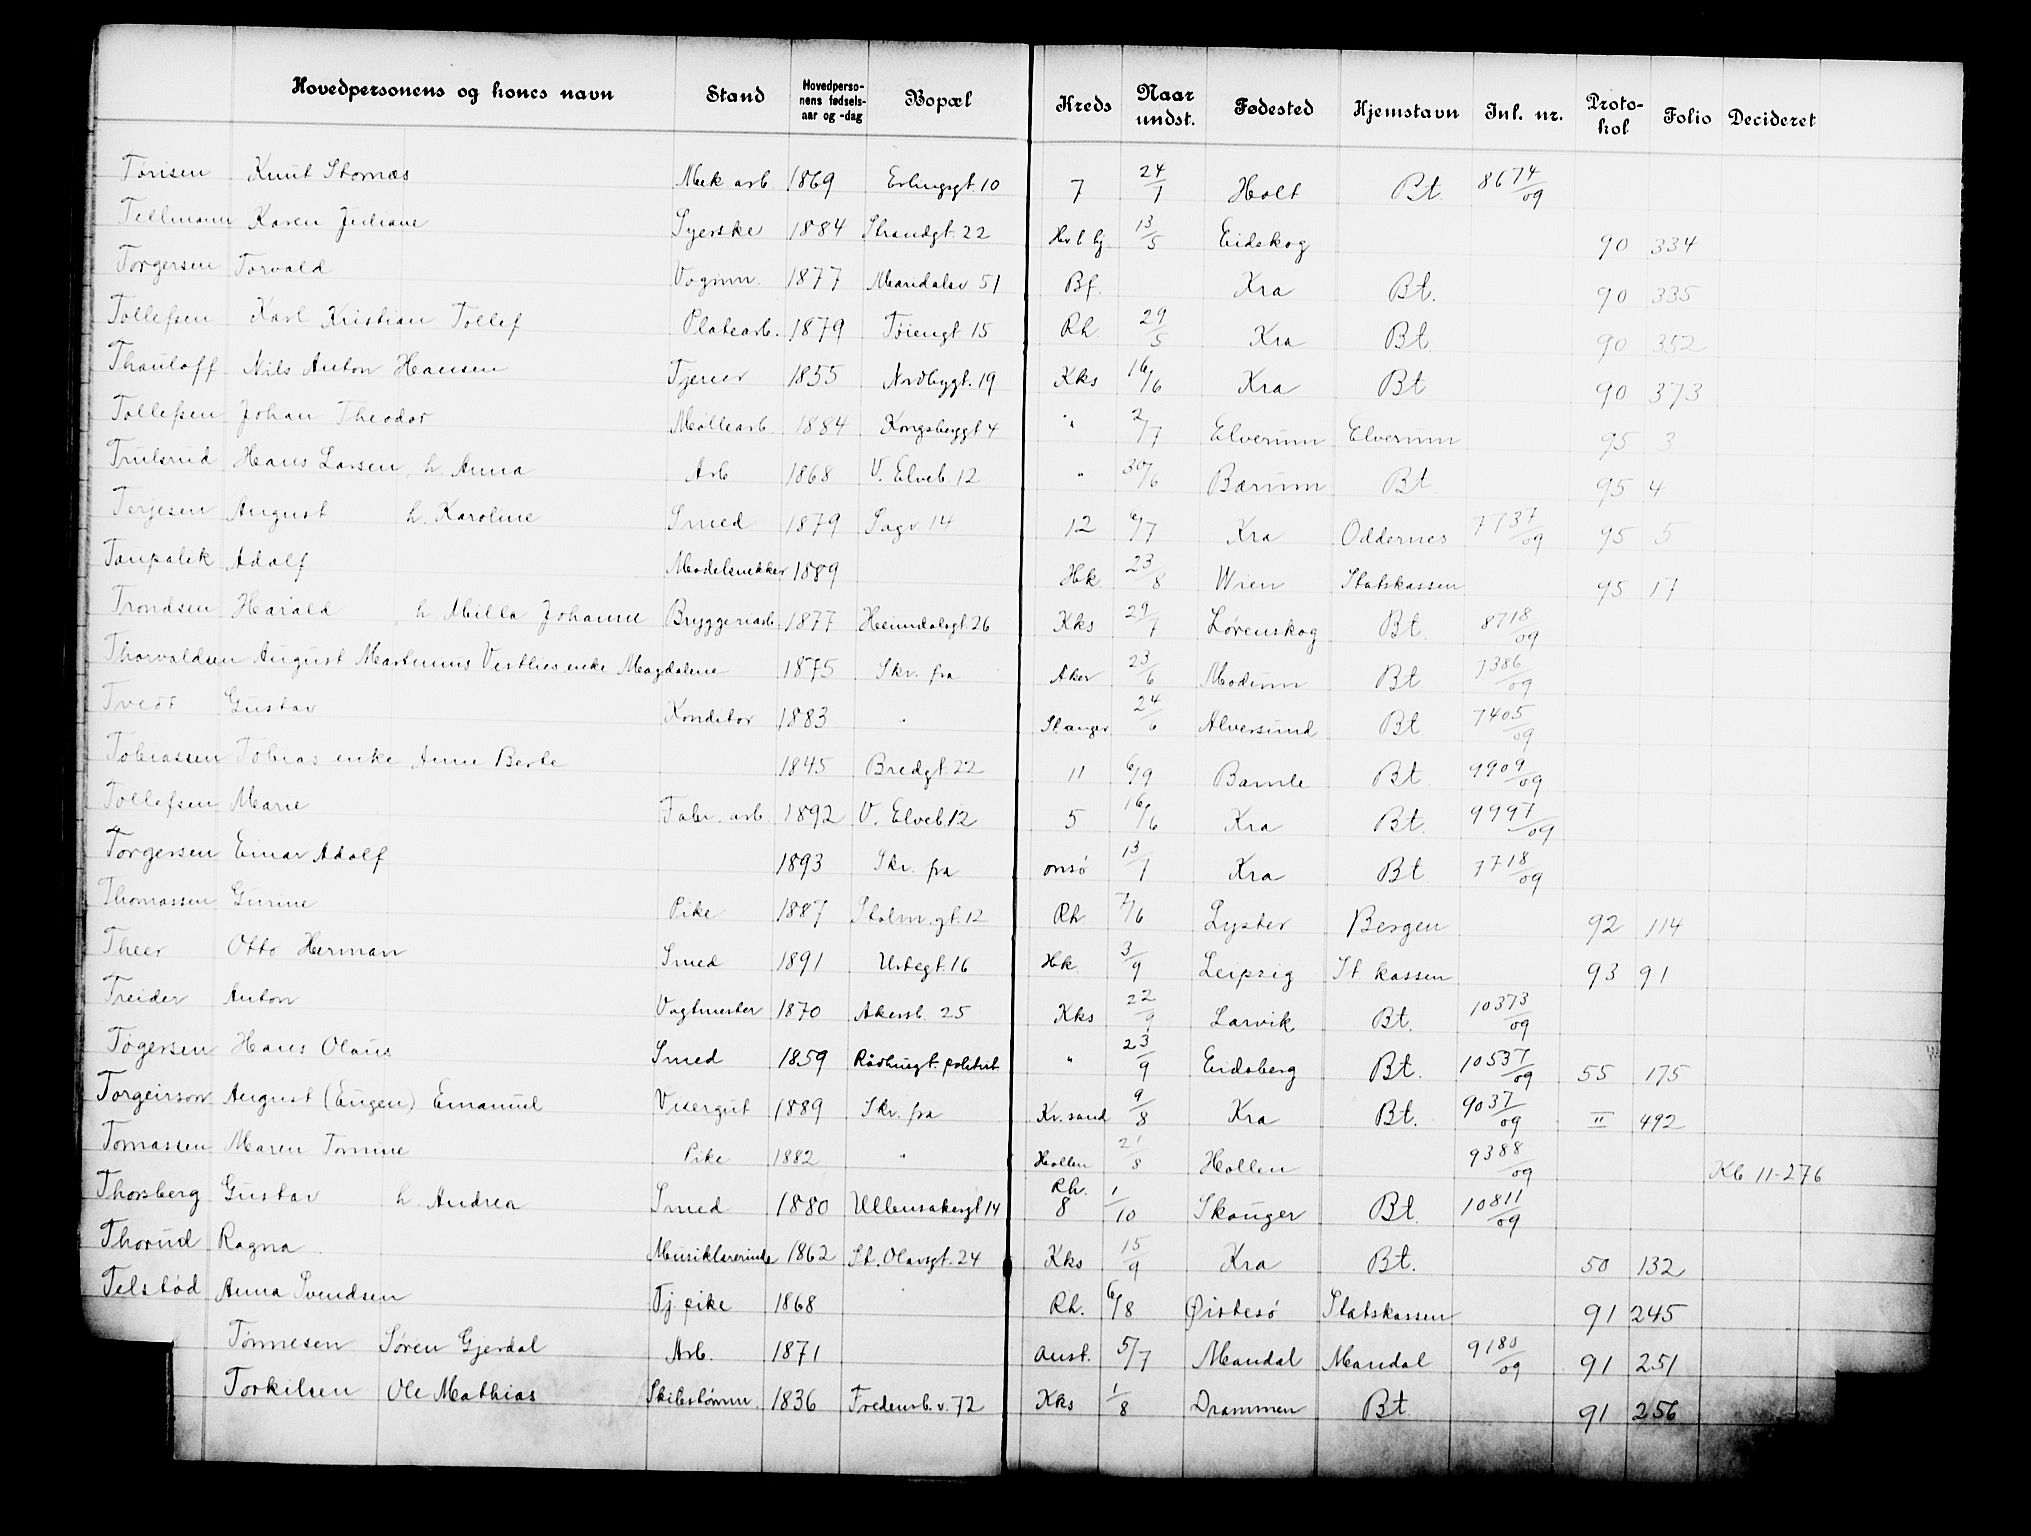 Hovedpersonens og kones navn Stand Hovedpersonens fødselsaar og -dag Bopæl Kreds Naar undst. Fødested Hjemstavn Inl. nr. Protokol Folio Decideret
Tørisen Knut Stornæs Mek arb. 1869 Erlingsgt. 10 7 24/1 Holt Bt. 8674/09
Tellmann Karen Juliane Syerske 1884 Strandgt. 22 13/5 Eidskog 90 334
Torgersen Torvald Vognm. 1877 Maridalsv 51 Bf. Kra Bt. 90 335
Tollefsen Karl Kristian Tollef Platearb. 1879 Tøiengt 15 Rh. 29/5 Kra Bt. 90 352
Thauloff Nils Anton Hansen Tjener 1855 Nordbygt. 19 Kks 16/6 Kra Bt 90 373
Tollefsen Johan Theodor Møllearb. 1884 Kongsberggt 4 " 2/7 Elverum Elverum 95 3
Trulsrud Hans Larsen, h. Anna Arb 1868 V. Elveb. 12 " 30/6 Bærum Bt 95 4
Terjesen August h. Karoline Smed 1879 Sagv 14 12 6/7 Kra Oddernes 7737/09 95 5
Taupalik Adolf Modelsnekker 1889 Hk. 23/8 Wien Statskassen 95 17
Trondsen Harald, h. Milla Johanne Bryggeriarb. 1877 Heimdalsgt. 26 Kks 29/7 Lørenskog Bt. 8718/09
Thorvaldsen August Martinius Vestlies enke Magdalene 1875 Skr. fra Aker 23/6 Modum Bt 7386/09
Tvedt Gustav Konditor 1883 " Stanger 24/6 Alversund Bt 7405/09
Tobiassen Tobias enke Anne Berte 1845 Bredgt. 22 11 6/9 Bamle Bt. 9909/09
Tollefsen Marie Fabr. arb. 1892 V. Elveb 12 5 16/6 Kra Bt. 9997/09
Torgersen Einar Adolf 1893 Skr. fra Onsø 13/7 Kra Bt. 7718/09
Thomassen Gurine Pike 1887 Stolm.gt. 12 Rh. 7/6 Lyster Bergen 92 114
Theer Otto Herman Smed 1891 Urtegt. 16 Hk. 3/9 Leipzig St. kassen 93 91
Treider Anton Vagtmester 1870 Akersb. 25 Kks 22/9 Larvik Bt. 10373/09
Togersen Hans Olaus Smed 1859 Rådhusgt. politist. " 23/9 Eidsberg Bt. 10537/09 55 175
Torgeirson August (Eugen) Emanuel Visergut 1889 Skr. fra Kr. sand 9/8 Kra Bt. 9037/09 II 492
Tomassen Maren Tomine Pike 1882 " Hollen 21/8 Hollen 9388/09 Kb 11-276
Thorsberg Gustav h. Andrea Smed 1880 Ullensakergt 14 Rh. 8 1/10 Skauger Bt. 10811/09
Thorud Ragna Musiklærerinde 1862 St. Olavsgt. 24 Kks 15/9 Kra Bt. 50 132
Telstød Anna Svendsen Tj. pike 1868 Rh. 6/8 Øistesø Statskassen 91 245
Tønnesen Søren Gjerdal Arb. 1871 Aust. 5/7 Mandal Mandal 9180/09 91 251
Torkilsen Ole Mathias Skibstømm. 1836 Fredensb.v. 72 Kks 1/8 Drammen Bt 91 256